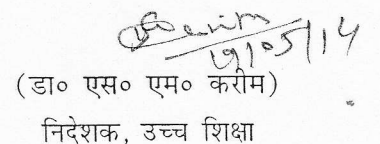 19/05/14
(डा० एस० एम० करीम)
निदेशक, उच्च शिक्षा